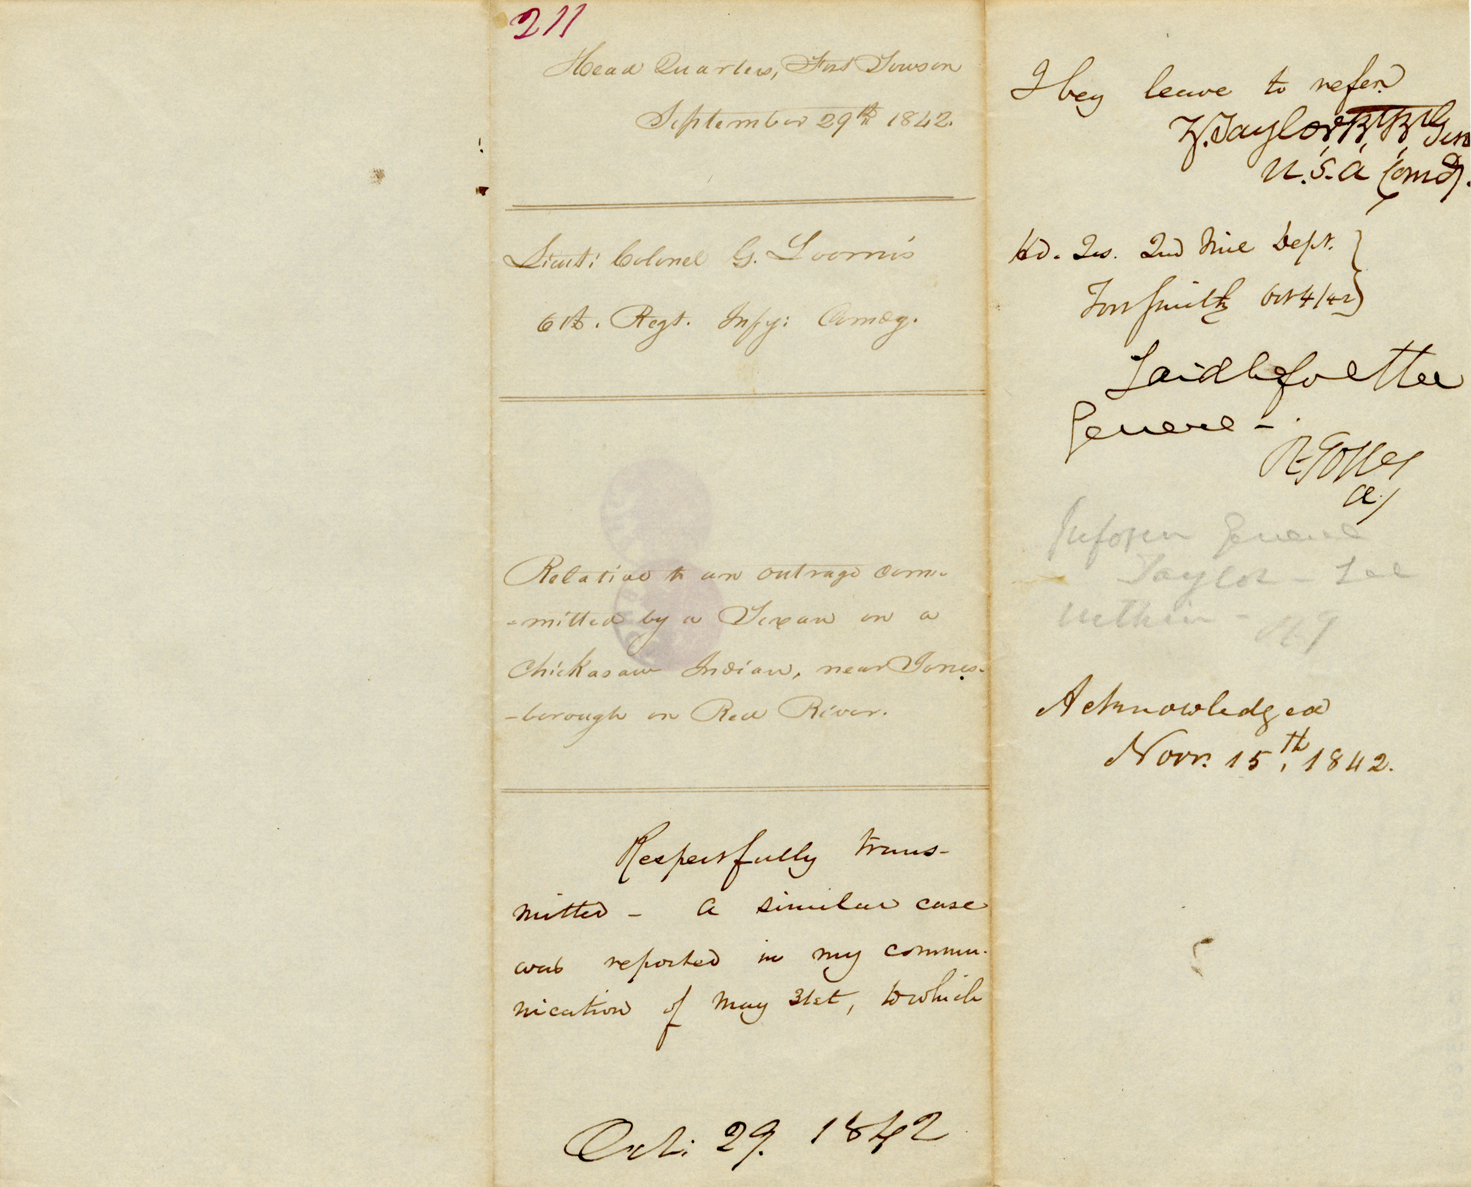 211
Head Quarters, Fort Towson
September 29th 1842.
Lieut: Colonel G. Loomis
6th. Regt. Infy: Comdg.
Relative to an outrage com-
-mitted by a Texan on a
Chickasaw Indian, near Jones-
-borough on Red River.
Respectfully trans-
mitted - A similar case
was reported in my commu-
nication of May 31st, to which
Oct: 29. 1842
I beg leave to refer
Z. Taylor Bt. B. Genl
U.S.A. Comdg.
Hd. Qrs. 2nd Mil Dept.
Fort Smith Oct 4/42
Laid before the
General -
R Jones
Inform General
Taylor - See
within - R J
Acknowledged
Novr. 15th, 1842.